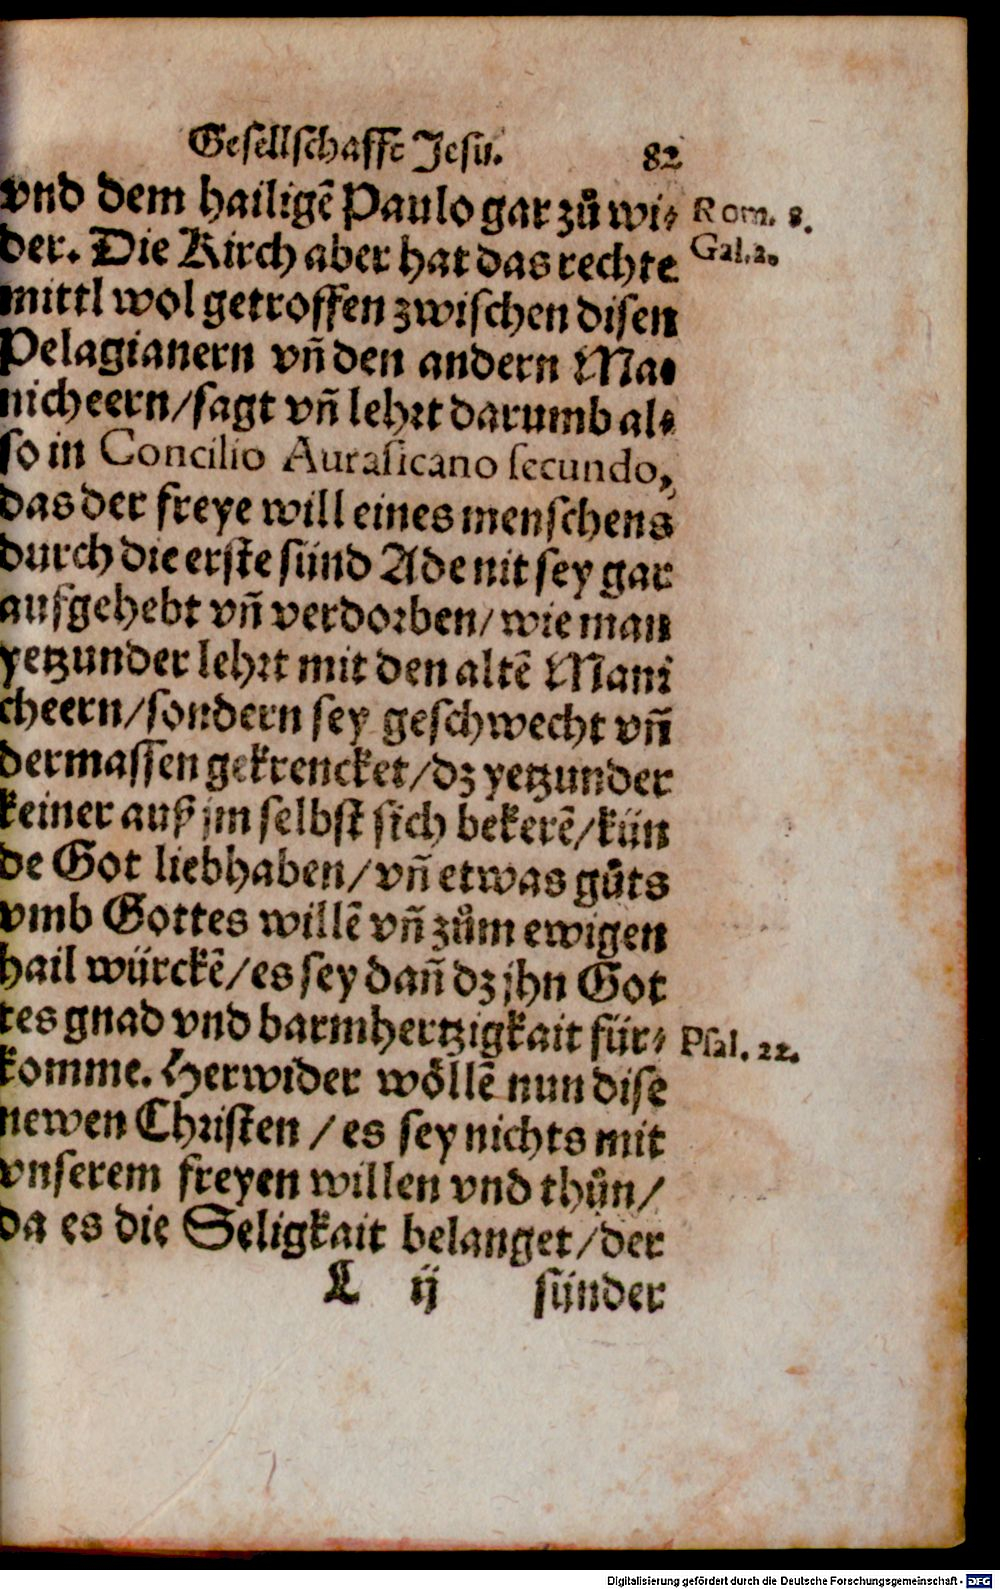 Gesellschafft Jesu. 82
vnd dem hailigẽ Paulo gar zů wi⸗
Rom. 8.
der. Die Kirch aber hat das rechte
Gal. 2.
mittl wol getroffen zwischen disen
Pelagianern vñ den andern Ma⸗
nicheern/sagt vñ lehrt darumb al⸗
so in Concilio Aurasicano secundo,
das der freye will eines menschens
durch die erste sünd Ade nit sey gar
aufgehebt vñ verdorben/ wie man
yetzunder lehrt mit den altẽ Mani
cheern/sondern sey geschwecht vñ
dermassen gekrencket/dz yetzunder
keiner auß jm selbst sich bekerẽ/kün
de Got liebhaben/vñ etwas gůts
vmb Gottes willẽ vñ zům ewigen
hail würckẽ/es sey dañ dz jhn Got
tes gnad vnd barmhertzigkait für⸗
Psal. 22.
komme. Herwider wöllẽ nun dise
newen Christen /es sey nichts mit
vnserem freyen willen vnd thůn/
da es die Seligkait belanget/der
L ij sünder
Digitalisierung gefördert durch die Deutsche Forschungsgemeinschaft - DFG